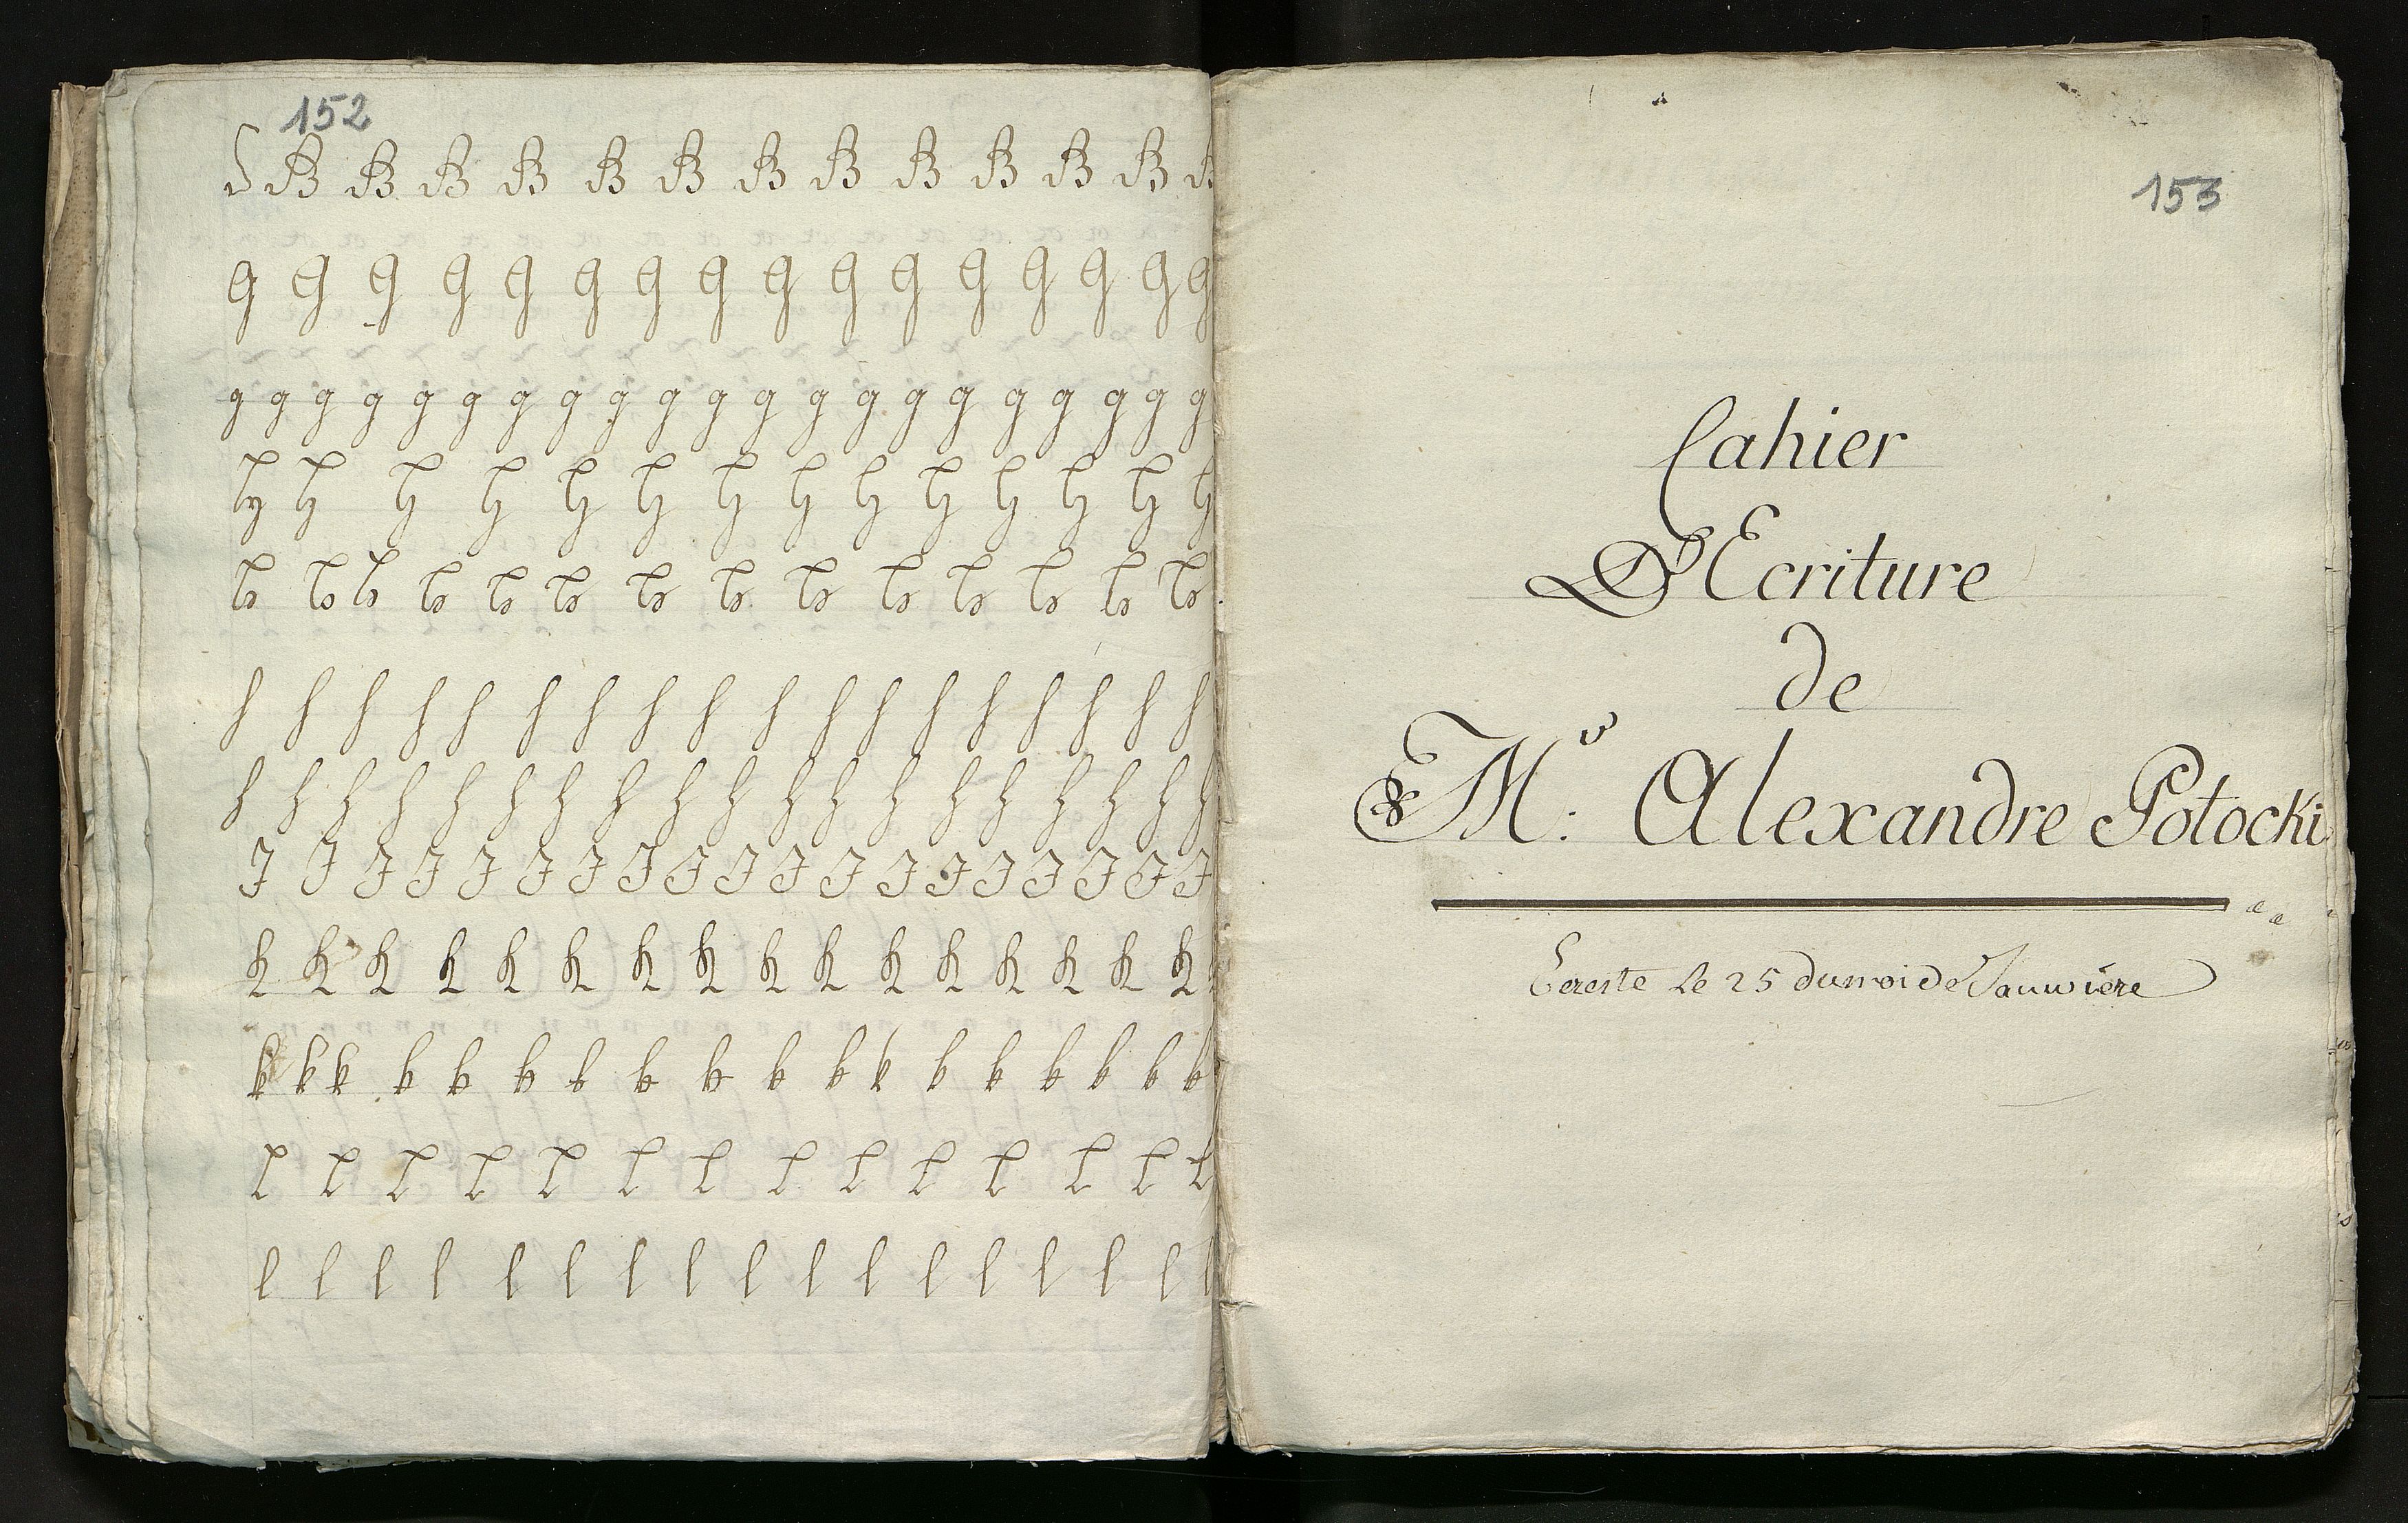 152
B B B B B B B B B B B B
G G G G G G G G G G G G G G G G
g g g g g g g g g g g g g g g g g g g g g
h h h h h h h h h h h h h h h h h h
h h h h h h h h h h h h h h h h h h h
J J J J J J J J J J J J J J J J J J J
K K K K K K K K K K K K K K K K
k k k k k k k k k k k k k k k k k k
L L L L L L L L L L L L L L
l l l l l l l l l l l l l l l l l
153
Cahier
D'Ecriture
de
Mr: Alexandre Potocki
le 25 du moi de Januviere